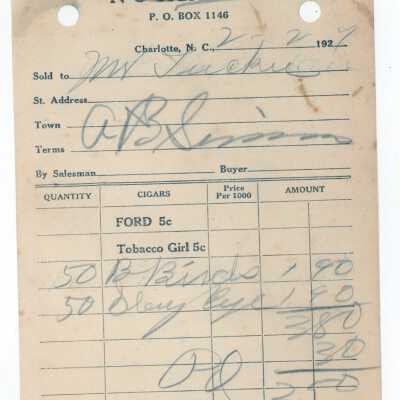 P. O. BOX 1146
Charlotte, N. C., 2-2 1927
Sold to Mr
St. Address
Town
Terms
By Salesman Buyer
QUANTITY CIGARS Price Per 1000 AMOUNT
FORD 5c
Tobacco Girl 5c
50 B Birds 1 90
50 1 90
3 80
30